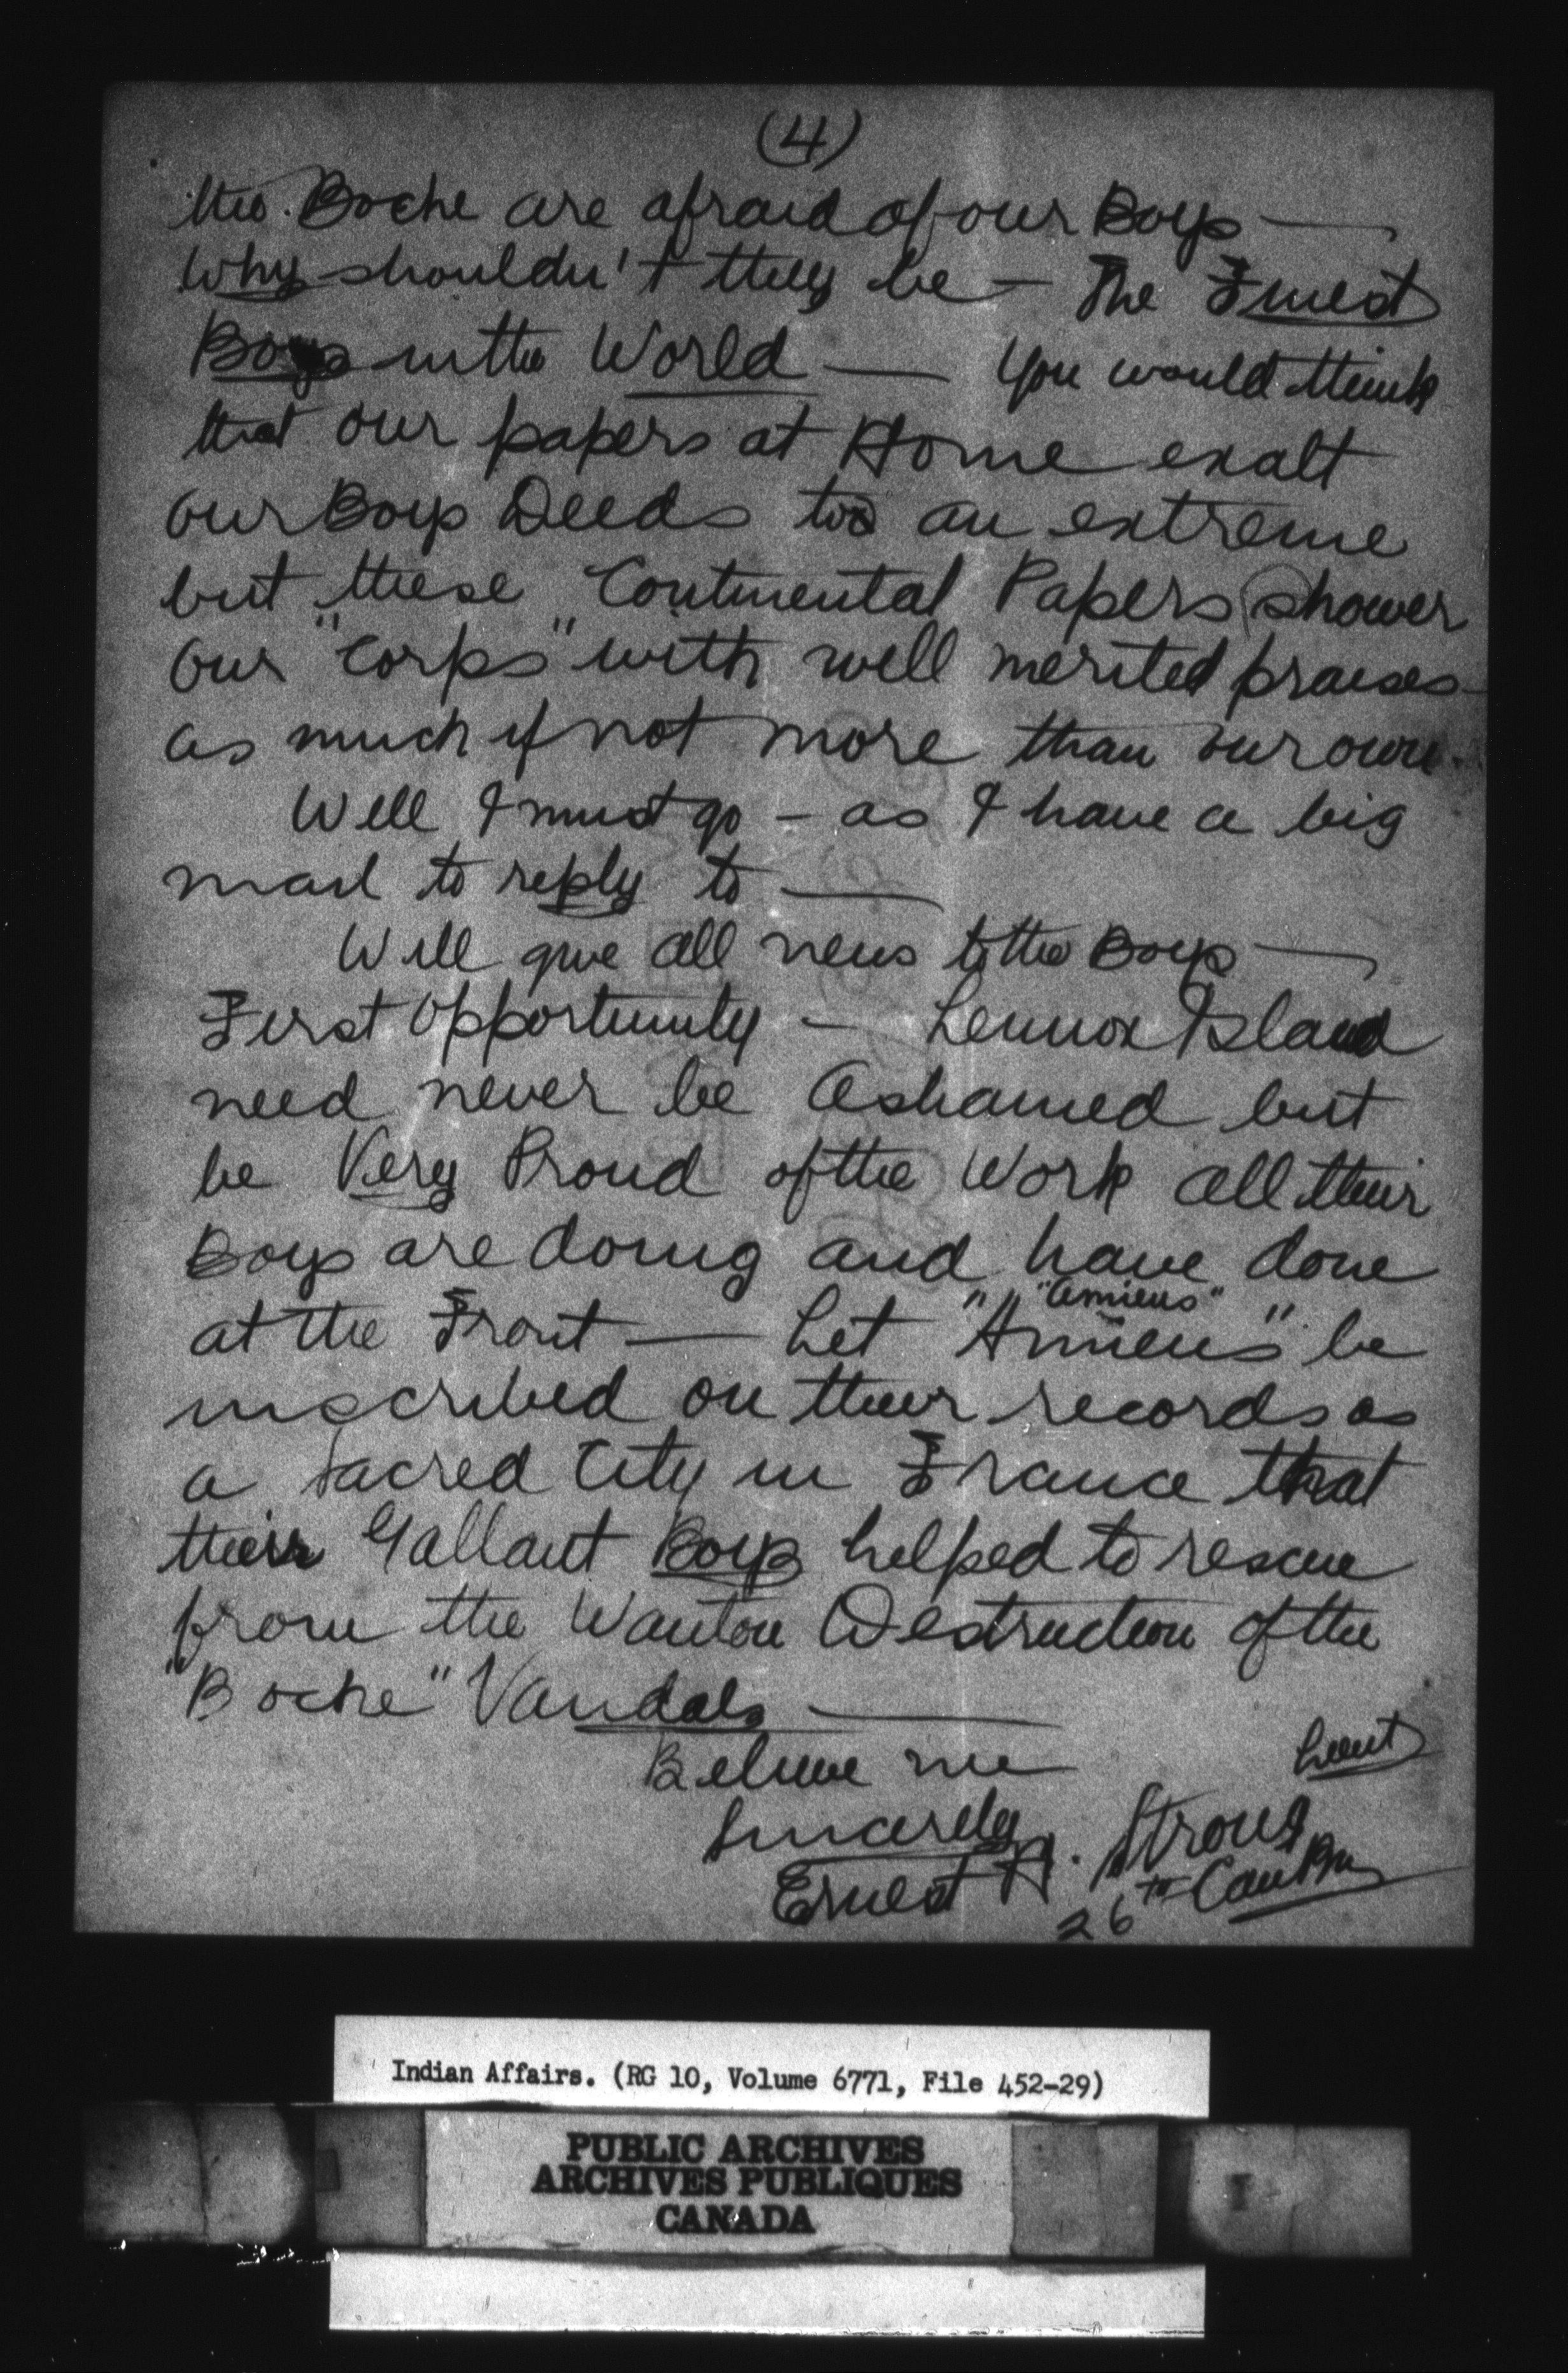 (4)
the Boche are afraid of our Boys —
Why shouldn't they be — The Finest
Boys in the World — You would think
that our papers at Home exalt
our Boys Deeds too an extreme
but these Continental Papers shower
our "Corps" with well merited praises
as much if not more than our own.
Well I must go — as I have a big
mail to reply to —
Will give all news to the Boys —
First Opportunity — Lennox Island
need never be Ashamed but
be Very Proud of the Work all their
Boys are doing and have done
"Amiens"
at the Front — Let "Amiens" be
inscribed on their records as
a Sacred City in France that
their Gallant Boys helped to rescue
from the Wanton Destruction of the
"Boche" Vandals —
Believe me
Sincerely
Lieut
Ernest A. Strong
26th Can Bn
Indian Affairs. (RG 10, Volume 6771, File 452-29)
PUBLIC ARCHIVES
ARCHIVES PUBLIQUES
CANADA